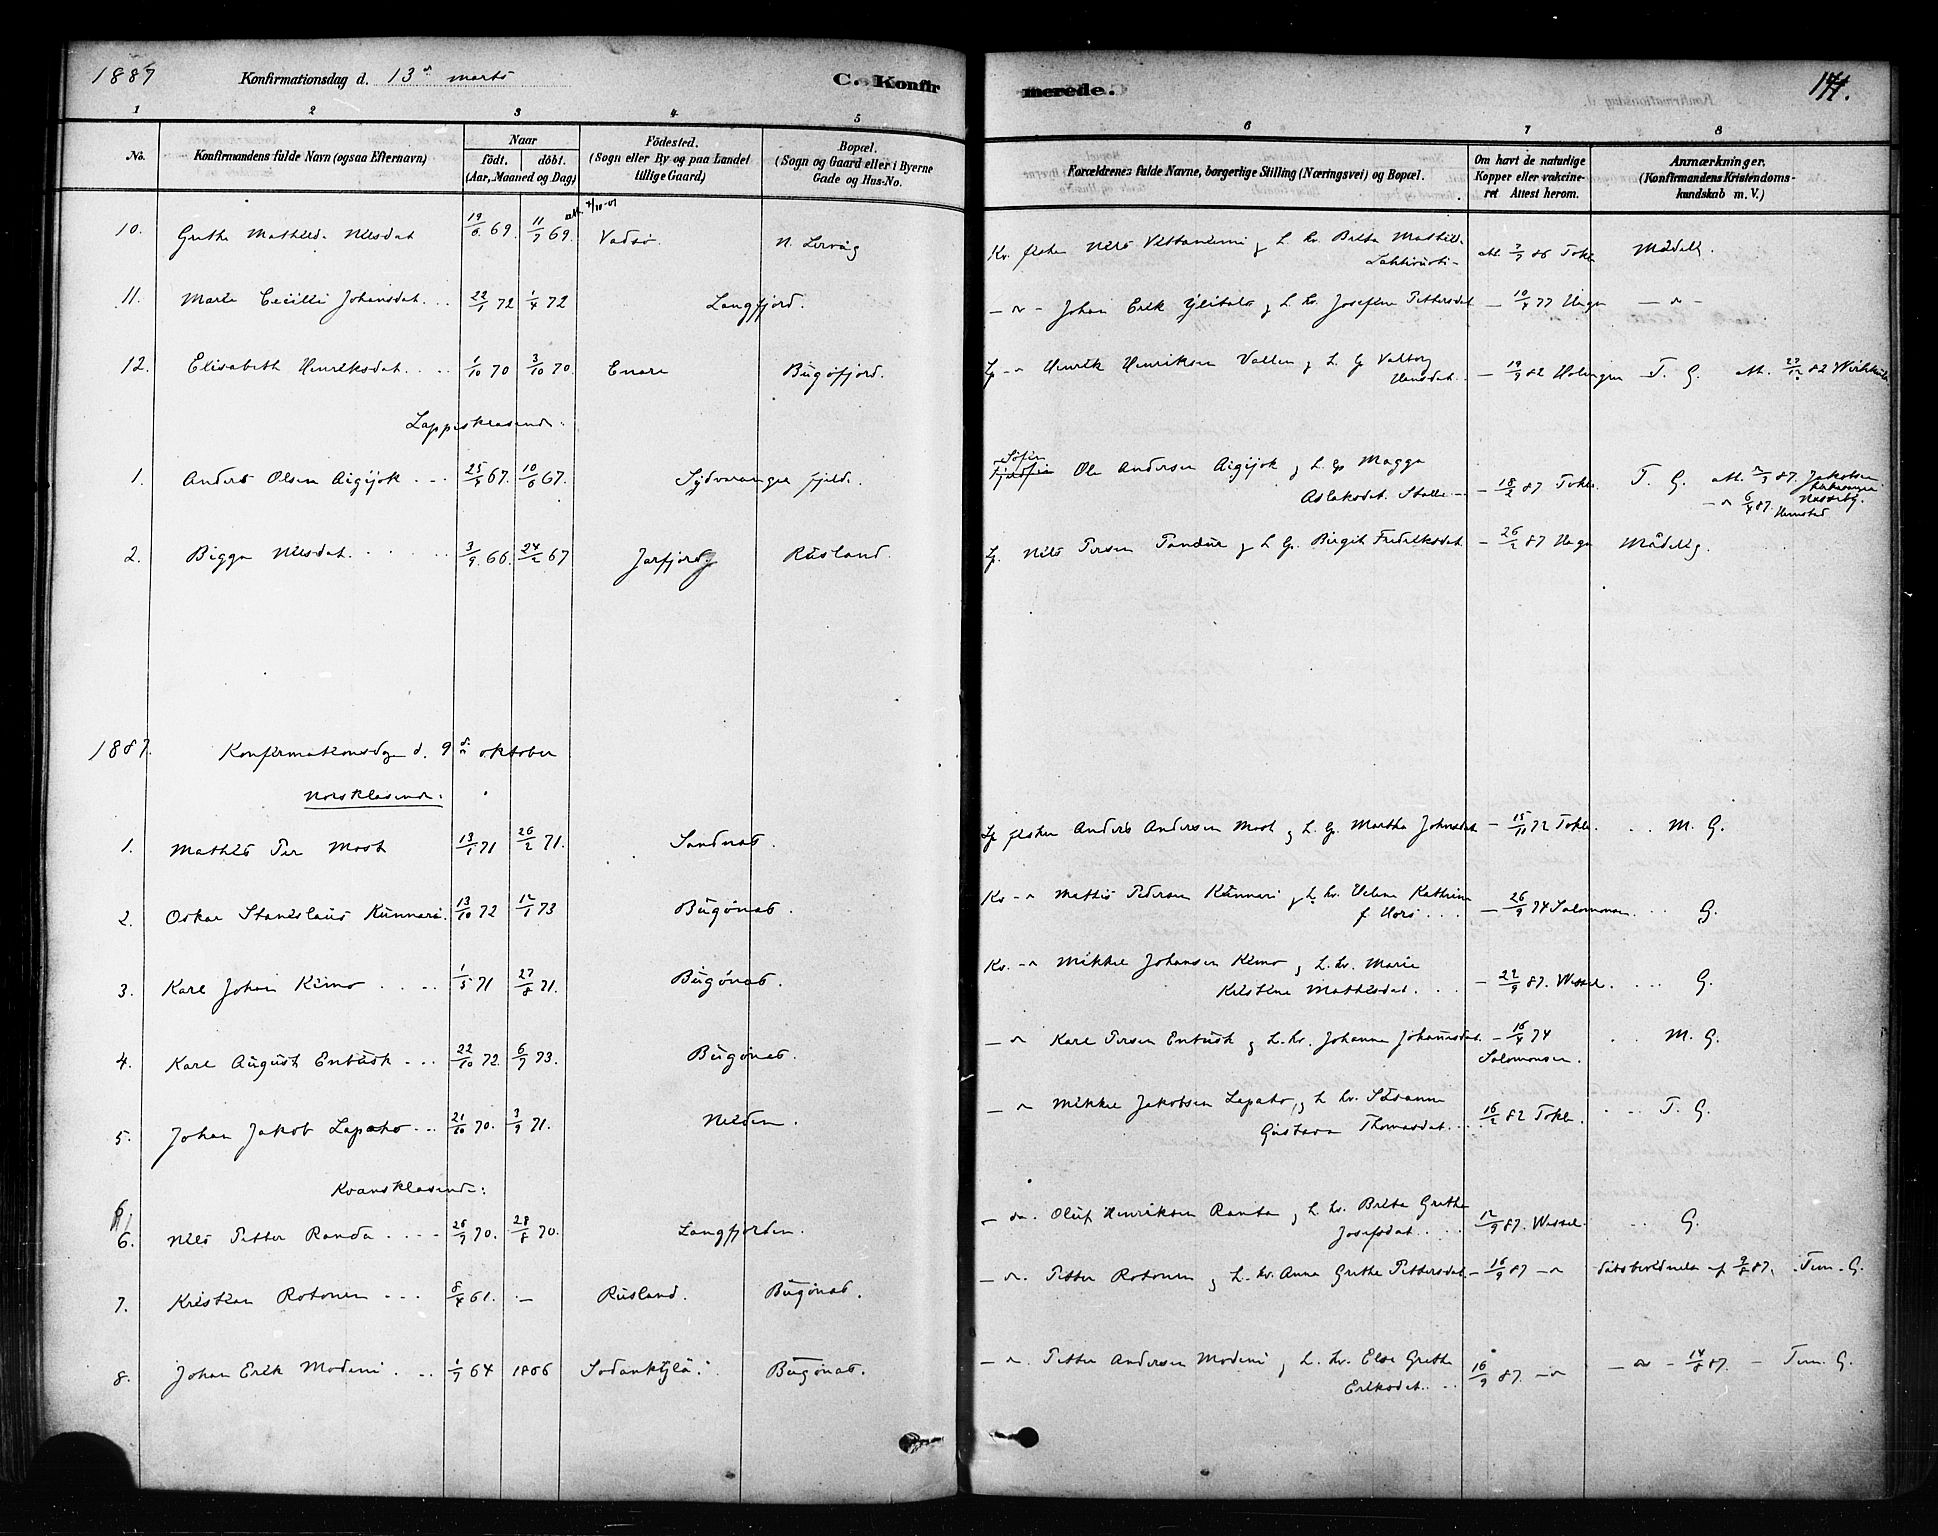 1887 Konfirmationsdag d. 13de marts C. Konfirmerede. 171.
1 2 3 4 5 6 7 8
No. Konfirmandens fulde Navn (ogsaa Efternavn) Naar födt. döbt. (Aar, Maaned og Dag) Födested. (Sogn eller By og paa Landet tillige Gaard) Bopæl. (Sogn og Gaard eller i Byerne Gade og Hus-No. Forældrenes fulde Navne, borgerlige Stilling (Næringsvei) og Bopæl. Om havt de naturlige Kopper eller vakcineret Attest herom. Anmærkninger. (Konfirmandens Kristendomskundskab m. V.)
att. 7/10-01
10. Grethe Mathilda Nilsdat 19/6 69. 11/9 69. Vadsø. N. Lervåg Kv. fisker Nils Vettaniemi g L. kv. Brita Mathild. att. 3/9 86 Tokle Mådelg.
11. Marie Cecilie Johansdat. 22/1 72 1/4 72 Langfjord. — Johan Erik Ylitalo g L. kv. Josefine Pettersdat — 10/4 77 Unga —
12. Elisabeth Henriksdat. 1/10 70 3/10 70. Enare Bugøfjord. Henrik Henriksen Vallen g L. G. Valborg
Hansdat. — 19/9 82 T. G. att. 27/12 82
Lappisklasend:
1. Anders Olsen Aigijok 25/5 67. 10/6 67. Sydvaranger fjeld. Søfin Ole Andersen Aigijok g L. G. Magga
Aslaksdat. — 18/2 87 Tokle. T. G. att. 2/3 87. Jakobsen
— 6/4 87.
2. Bigga Nilsdat. 3/9 66 24/2 67 Jarfjord Rusland. Lf. Nils Persen g L. G. Birgit Fredriksdat — 26/2 87 Unga Mådelig.
1887. Konfirmationsdag d. 9de oktober
Norskklasend:
1. Mathis Per Most 13/1 71 26/2 71. Sandnes. Lf fisker Anders Andersen Most g L. G. Martha Johnsdat — 15/11 72 Tokle. M. G.
2. Oskar Stanislaus Kunnari. 13/10 72 12/1 73 Bugønes. Kv — Mathis Pedersen Kunnari g L. kv. Helene Kathrine
— 26/9 74 Salomonsen. G.
3. Karl Johan Kimo 1/5 71 27/8 71. Bugønes. Kv. — Mikkel Johansen Kimo g L. kv. Marie
Kristine Mathisdat. — 22/9 87. Wessel. G.
4. Karl August Entusk 22/10 72. 6/7 73. Bugønes. — Karl Persen Entusk g L. kv. Johanna Johannesdat. — 16/4 74
Salomonsen. M. G.
5. Johan Jakob Lapaho 21/10 70. 3/9 71. Neiden. — Mikkel Jakobsen Lapaho, g L kv. Susanne
Gustava Thomasdat. 16/2 82 Tokle. T. G.
Kvænsklasend:
6. Nils Petter Randa 26/7 70. 28/8 70. Langfjorden. — Oluf Henriksen Ranta g L. kv. Brita Grethe
Josefsdat. 12/9 87. Wessel. G.
7. Kristian Rotonen 8/4 61. — Rusland. Bugønes. — Petter Rotonen g L. kv. Anna Grethe Pettersdat — 16/9 87 — af 9/8 87. Tem. G.
8. Johan Erik Modeni 1/7 64 1866 Sodankylä. Bugønes. — Petter Andersen Modeni g L. kv. Elsa Grethe
Eriksdat. 16/9 87. — 14/8 87. — Tem. G.